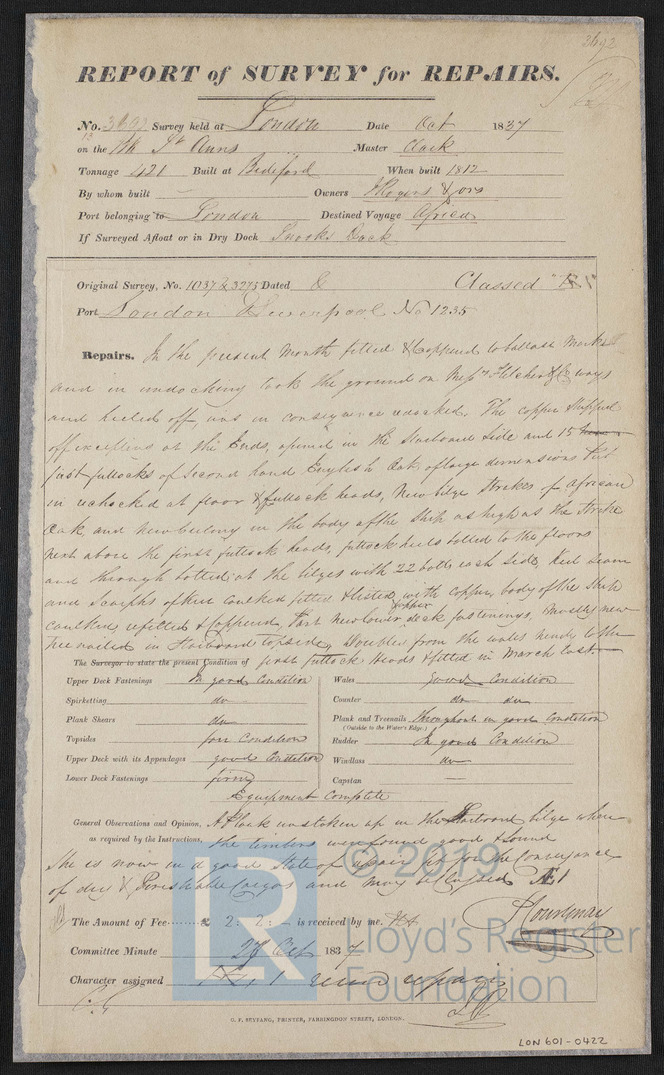 3692
REPORT of SURVEY for REPAIRS.
No. 3692 Survey held at London Date Oct 1837
on the Bk St Anns Master Clark
Tonnage 421 Built at Bideford When built 1812
By whom built — Owners Rogers & ors
Port belonging to London Destined Voyage African
If Surveyed Afloat or in Dry Dock Snooks Dock
Original Survey, No. 1037 & 3275 Dated & Classed
Port London & Liverpool No 1235
Repairs. In the present Month fitted & Coppered to ballast Marks
and in undocking took the ground on Messrs Fletcher & Co ways
and heeled off, was in consequence redocked. The copper stripped
off excepting at the Ends, opened in the Starboard Side and 15
first futtocks of Second hand English Oak of large dimensions Put
in chocked at floor & futtock heads, New bilge Strakes of African
Oak and in the body of the Ship as high as the Strake
next above the first futtock heads, futtock heels bolted to the floors
and through bolted at the bilges with 22 bolts each side, Keel Seam
and Scarphs of Keel caulked with copper, body of the Ship
caulked, refitted & coppered, Part new lower deck fastenings, mostly new
upper
Treenailed in Starboard topside, Doubled from the wales
The Surveyor to state the present Condition of first futtock Heads & fitted in March last.
Upper Deck Fastenings In good Condition Wales Good Condition
Spirketting do Counter do do
Plank Shears do Plank and Treenails throughout in good Condition
(Outside to the Water's Edge.)
Topsides fair Condition Rudder In good Condition
Upper Deck with its Appendages good Condition Windlass do
Lower Deck Fastenings firm Capstan —
Equipment Complete
General Observations and Opinion, A Plank was taken up in the Starboard bilge when
as required by the Instructions, the timbers were found good & sound
She is now in a good State of repair fit for the conveyance
of dry & Perishable Cargos and may be Classed Æ1
The Amount of Fee........ £ 2 : 2 : — is received by me.
Committee Minute 27 Oct 1837
Character assigned Æ 1 repair
G. F. SEYFANG, PRINTER, FARRINGDON STREET, LONDON.
LON 601-0422
© 2019
LR
Lloyd's Register
Foundation